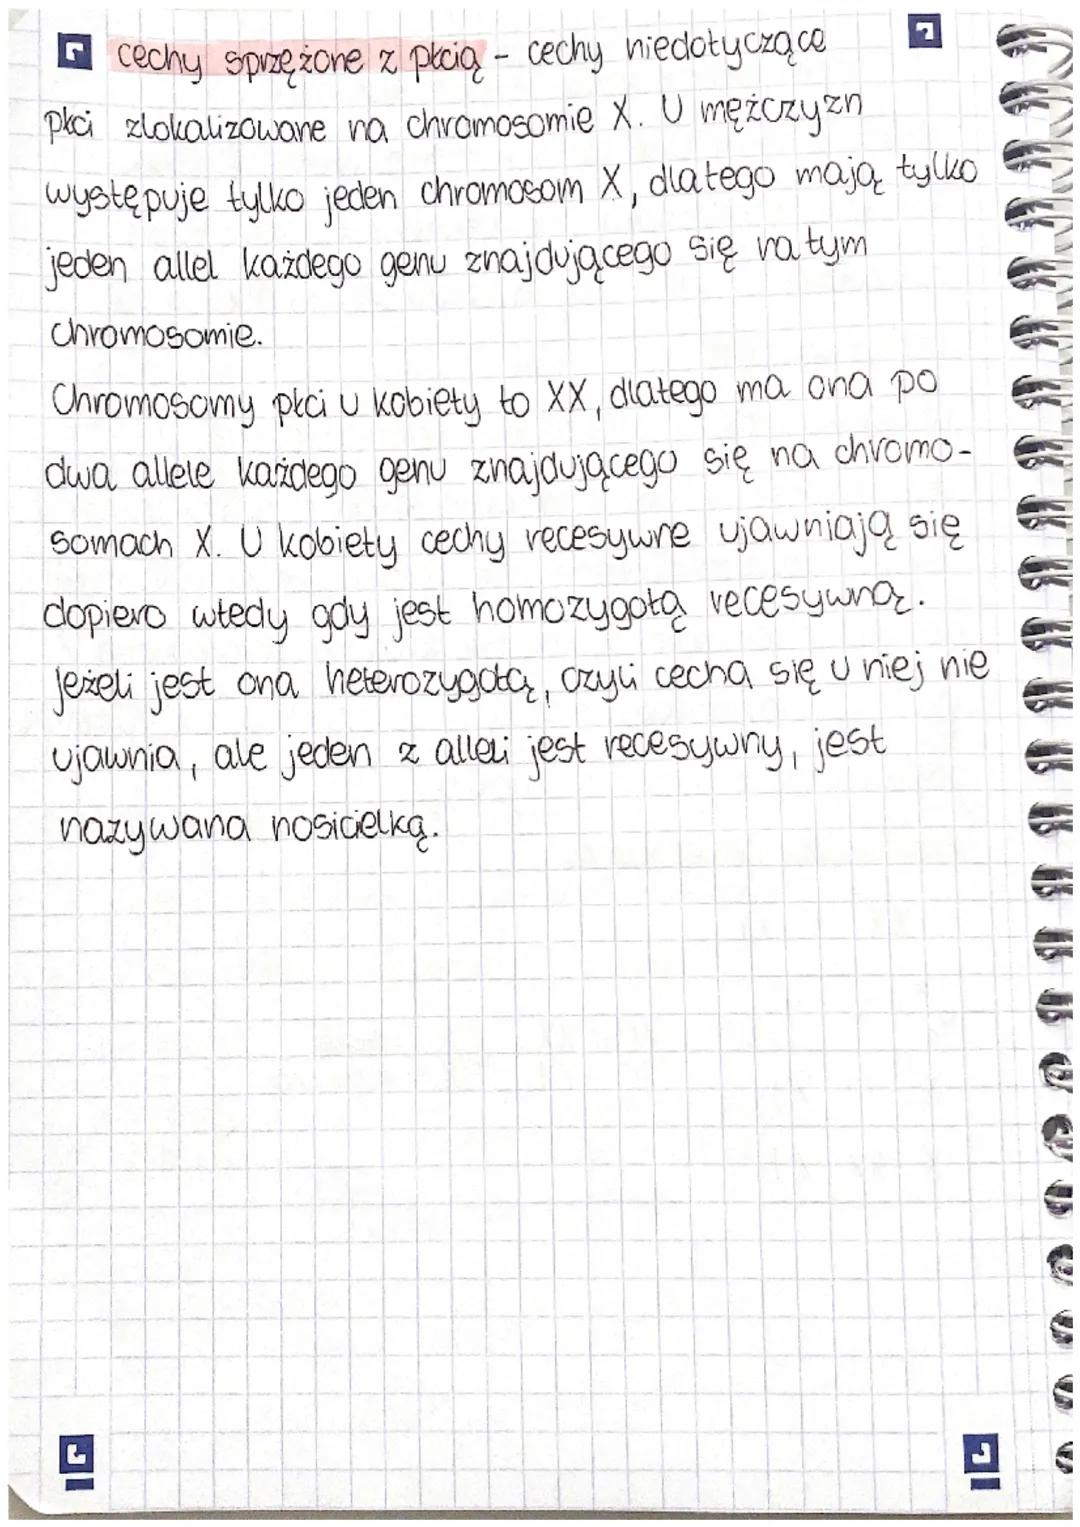 cechy sprzężone z płcią - cechy niedotyczące
płci zlokalizowane na chromosomie X. U mężczyzn
występuje tylko jeden chromosom X, dlatego mają tylko
jeden allel każdego genu znajdującego się na tym
chromosomie.
Chromosomy płci u kobiety to XX, dlatego ma ona po
dwa allele każdego genu znajdującego się na chromo-
somach X. U kobiety cechy recesywne ujawniają się
dopiero wtedy gdy jest homozygotą recesywną.
Jeżeli jest ona heterozygotą, czyli cecha się u niej nie
ujawnia, ale jeden z alleli jest recesywny, jest
nazywana nosicielką.